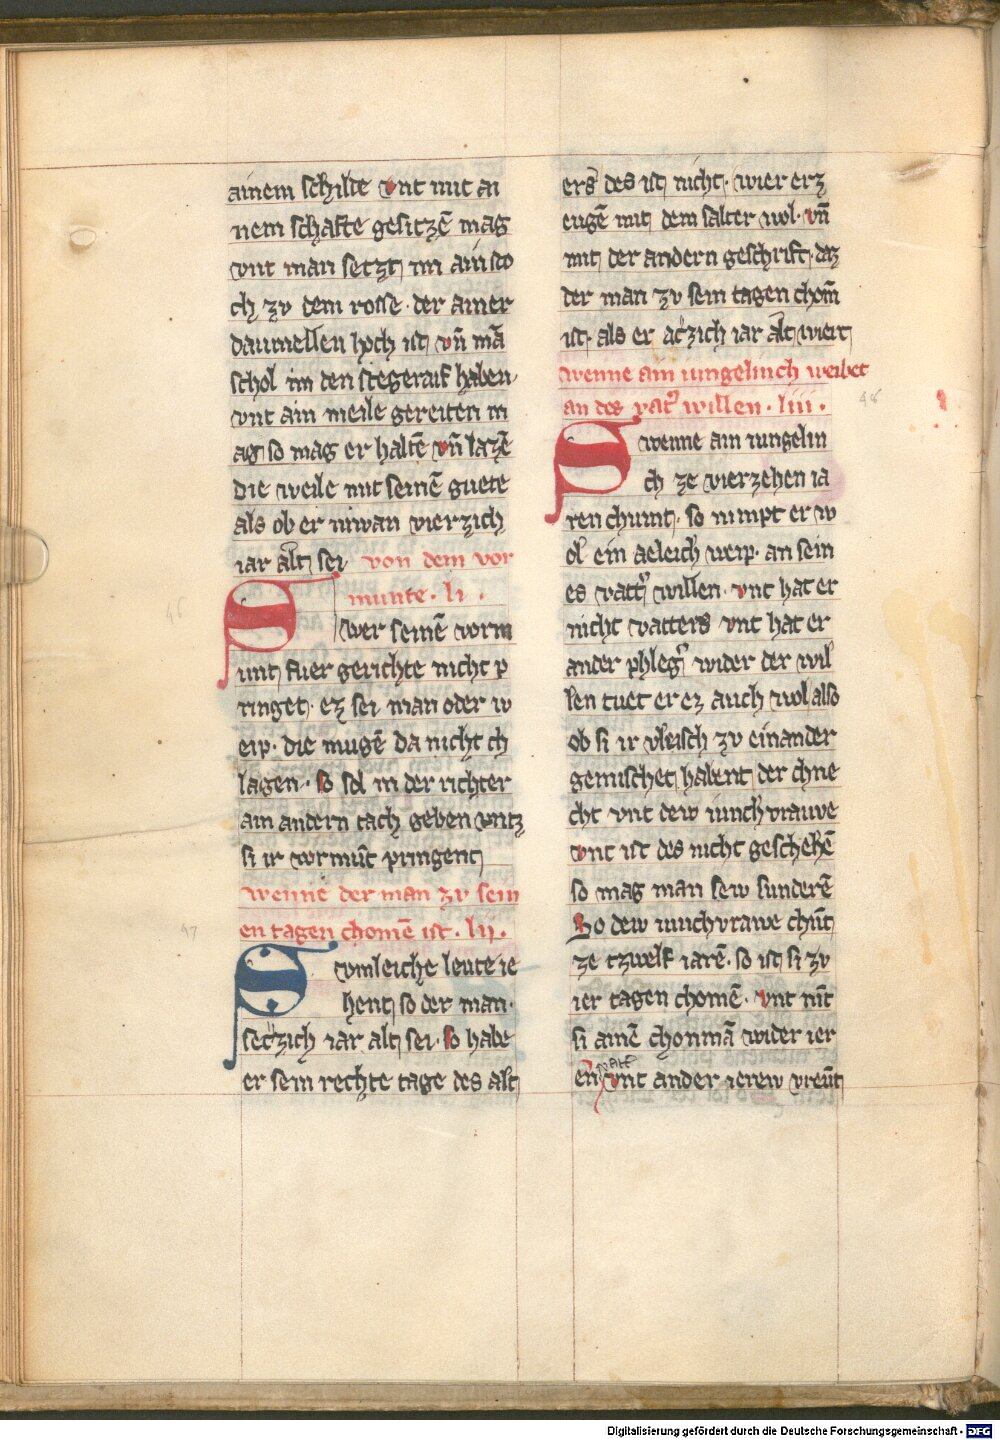 ainem schilte vnt mit ai
nem schafte gesitzē mag
vnt man setzt im ain sto
ch zv dem rosse · der ainer
daumellen hoch ist vn̄ mā
schol im den stegeraif haben
vnt ain meile gereiten m
ag so mag er haltē vn̄ lazē
die weile mit seinē guete
als ob er niwan vierzich
iar alt sei von dem vor
munte · li ·
Swer seinē vorm
unt fuer gerichte nicht p
ringet · ez sei man oder w
eip · die mugē da nicht ch
lagen · so sol in der richter
ain andern tach geben vntz
si ir vormūt pringent
wenne der man zv sein
en tagen chomē ist · lii ·
Svmleiche leute ie
hent so der man ·
sechzich iar alt sei · so habe
er sein rechte tage des alt
ers des ist nicht · wier erz
eugē mit dem salter wol · vn̄
mit der andern geschrift · daz
der man zv sein tagen chom̄
ist · als er aczich iar alt wiert
wenne ain iungelinch weibet
an des vat̓s willen · liii ·
46
Swenne ain iungelin
ch ze vierzehen ia
ren chumt · so nimpt er w
ol ein aeleich weip · an sein
es vatt̓s willen · vnt hat er
nicht vatters vnt hat er
ander phleg̓ wider der wil
len tuet er ez auch wol also
ob si ir vleisch zv einander
gemischet habent der chne
cht vnt dew iunchvrauve
vnt ist des nicht geschehē
so mag man sew sunderē
So dew iunchvrawe chūt
ze tzwelf iarē · so ist si zv
ier tagen chomē · vnt nīt
si ainē chonmā wider ier
en̄ vat̓ vnt ander ierew vreūt
47
Digitalisierung gefördert durch die Deutsche Forschungsgemeinschaft - DFG